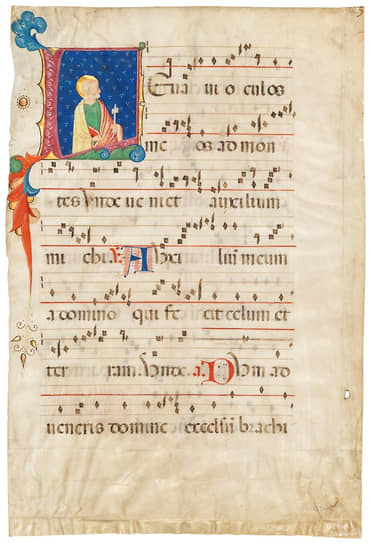 LEua ui o culos
me os ad mon
tes Vnde ue niet auxilium
mi chi V Auxi liū meum
a domino qui fe cit celum et
ter ram Vnde. a. Dum ad
ueneris domine brachi